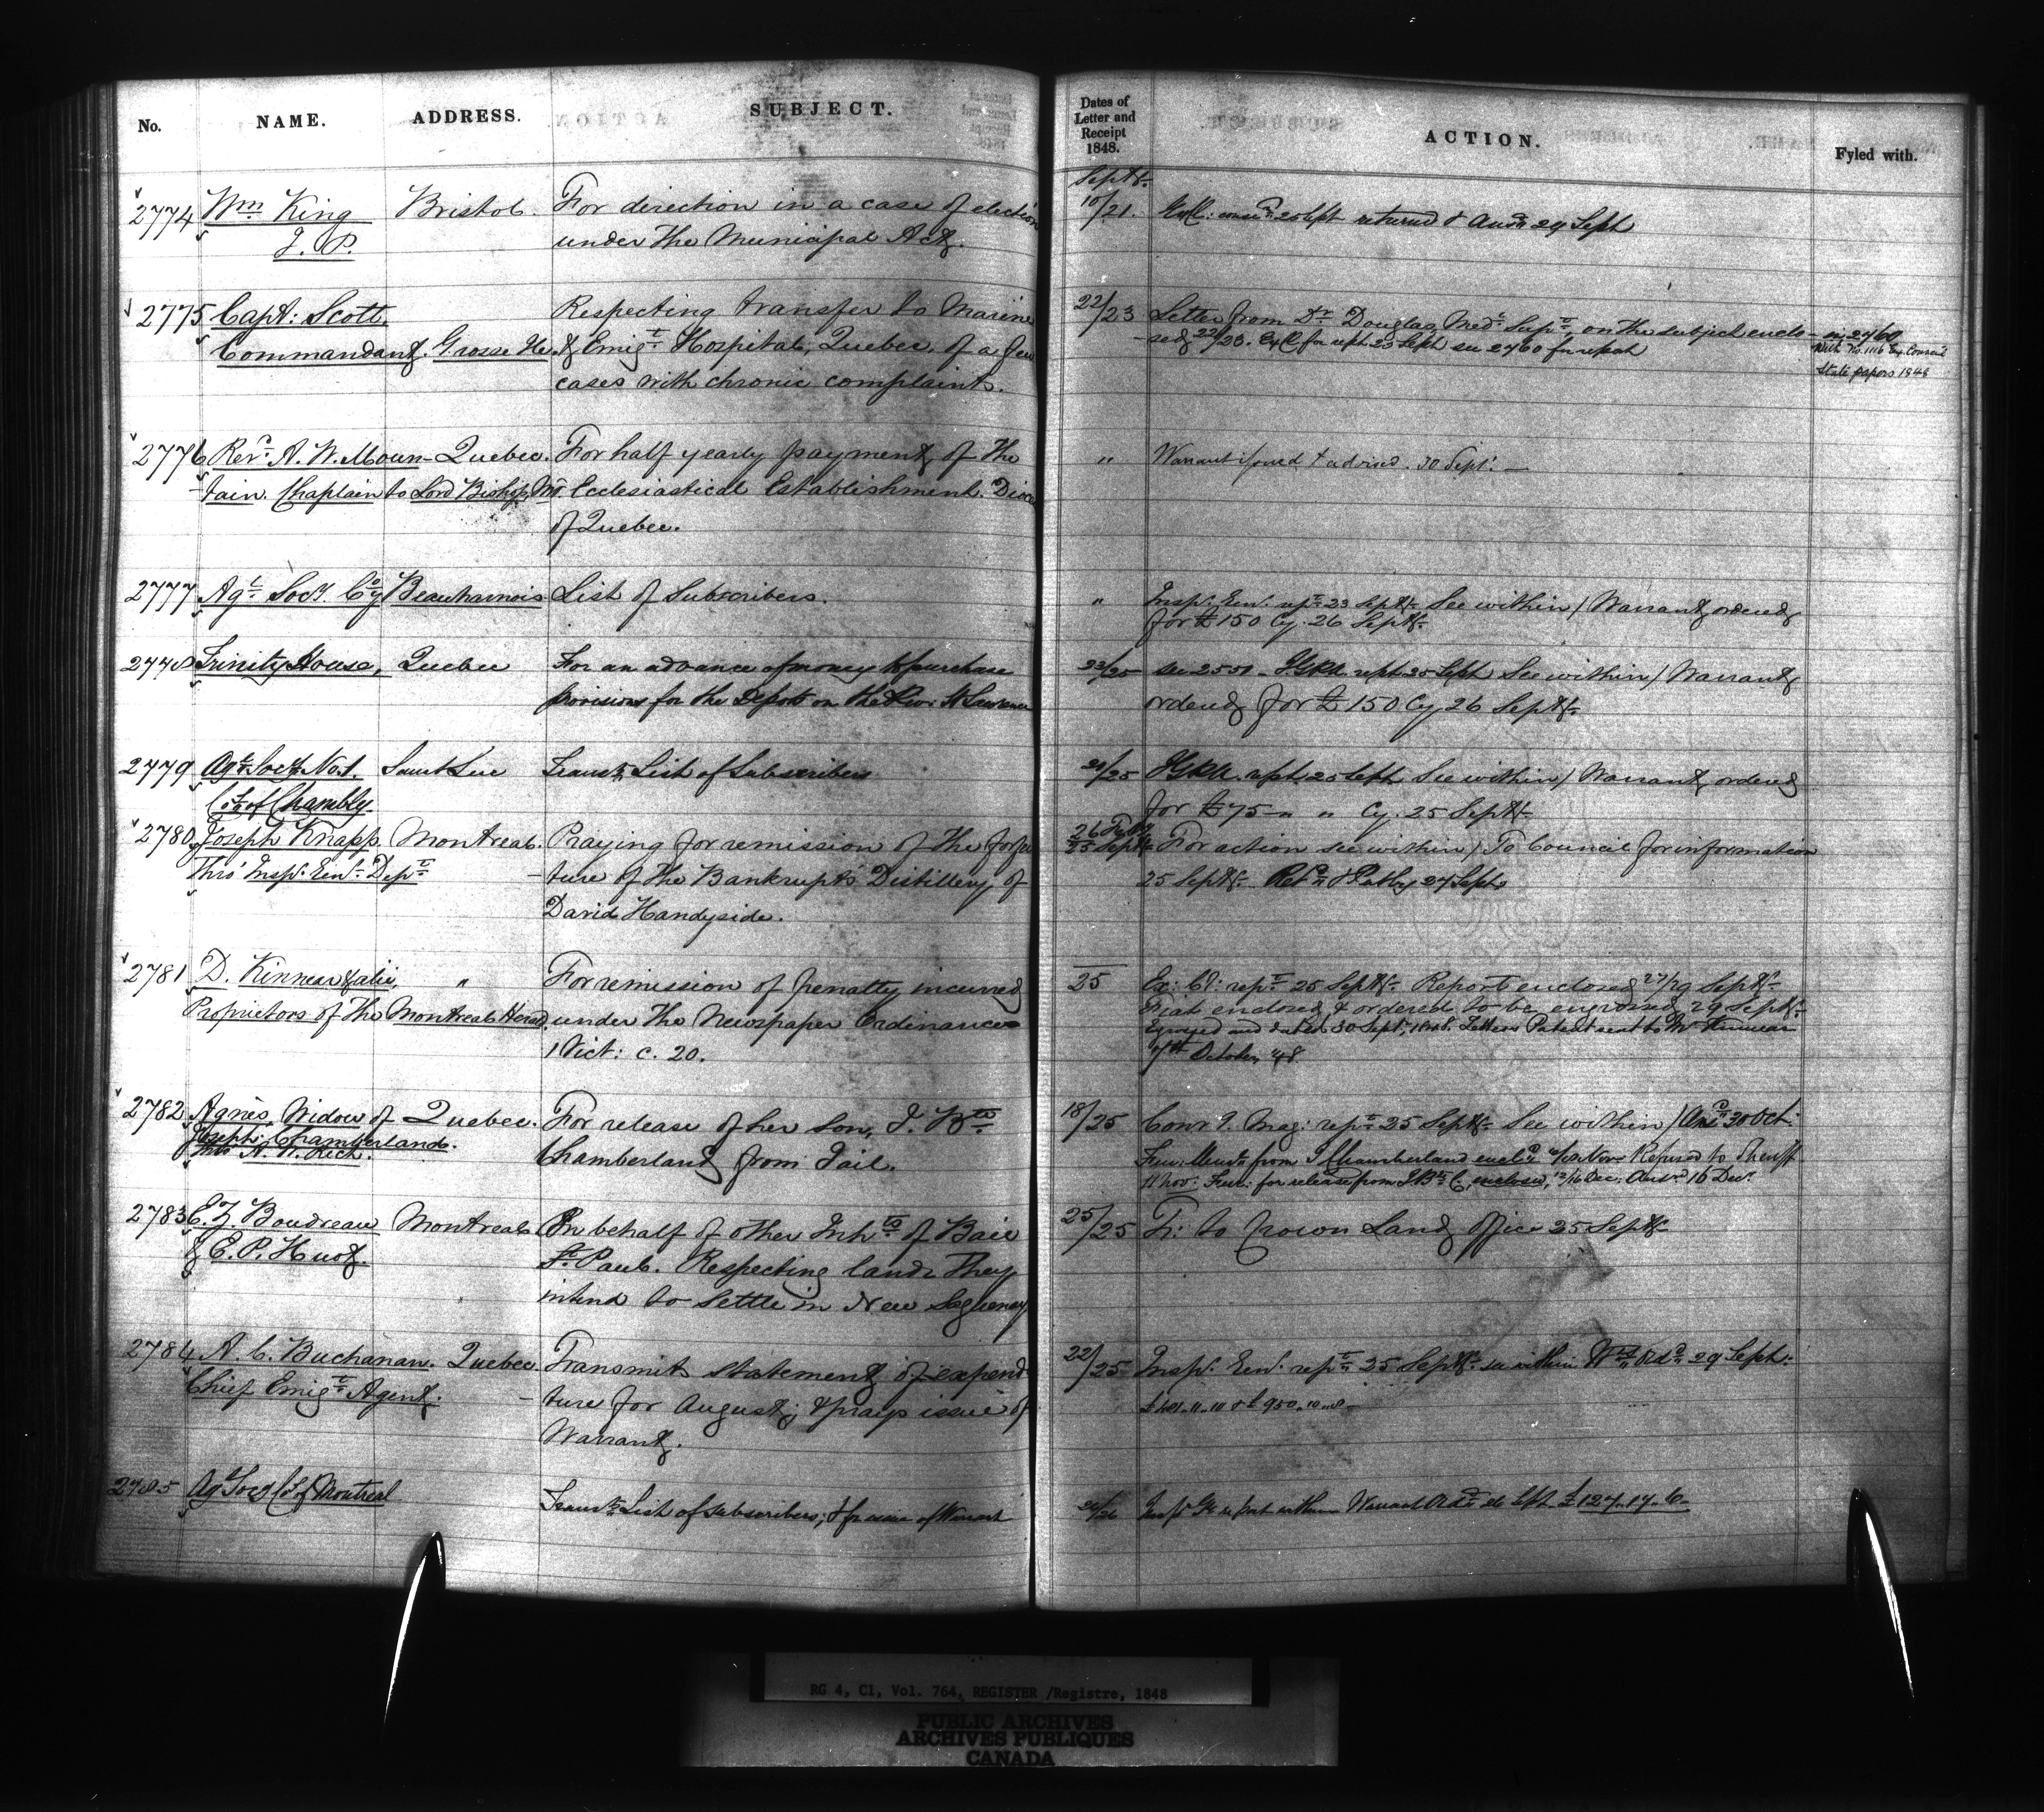 No. NAME. ADDRESS. SUBJECT.
2774 Wm King Bristol. For direction in a case of election
J. P. under the Municipal Act.
2775 Capt: Scott. Respecting transfer to Marine
Commandant. Grosse Ile. & Emigt Hospital, Quebec, of a few
cases with chronic complaints.
2776 Revd A. W. Moun- Quebec. For half yearly payment of the
-tain. Chaplain to Lord Bishop Ml. Ecclesiastical Establishment. Dioce
of Quebec.
2777 Agl Socy. Coy Beauharnois List of Subscribers.
2778 Trinity House, Quebec For an advance of money to purchase
provisions for the Depots on the River St Lawrence
2779 Agl Socy No. 1. Saint Luc Transts List of Subscribers
Coy of Chambly.
2780 Joseph Knapp. Montreal. Praying for remission of the forfei
Thro' Insp: Genl Dept -ture of the Bankrupts Distillery of
David Handyside.
2781 D. Kinnear & alii, " For remission of penalty incurred
Proprietors of the Montreal Herald under the Newspaper Ordinance
1 Vict: c. 20.
2782 Agnes, Widow of Quebec. For release of her son, J. Bte
Joseph Chamberland. Chamberland from Jail.
Thro A. N. Rich.
2783 E. Z. Boudreau Montreal On behalf of other Inhts of Baie
& E. P. Huot. St. Paul. Respecting lands they
intend to settle in New Saguenay
2784 A. C. Buchanan. Quebec. Transmits statement of expendi
Chief Emigt Agent. -ture for August; & prays issue of
Warrant.
2785 Ag Socy Co of Montreal Transts List of subscribers; & for issue of Warrant
Dates of
Letter and
Receipt
1848.
ACTION. Fyled with.
Septr
10/21. returned & Ansd 29 Sept
22/23 Letter from Dr Douglas, Medl Supt, on the subject enclo- in 2760
-sed 22/23. Ex C for rept 23 Sept see 2760 for report With No. 1116 Ex. Council
State papers 1848
" Warrant issued & advised. 30 Sept: —
" Insp: Genl. rept 23 Septr See within / Warrant ordered
for £150 Cy. 26 Septr.
23/25 see 2551 - rept 25 Sept See within / Warrant
ordered for £150 Cy 26 Septr.
20/25 rept 25 Sept See within / Warrant ordered
for £75 - " " Cy. 25 Septr
26 Feby
25 Septr For action see within / To Council for information
25 Septr. 27 Sept.
25 Ex: Cl: rept 25 Septr Report enclosed 27/29 Septr
Fiat enclosed & ordered to be engrossed 29 Septr
Engrossed and dated 30 Sept, 1848. Letters Patent sent to Mr Kinnear
7th October, 48.
18/25 Comr J. Mag: rept 25 Septr See within / Ansd 30 Oct:
Fur: from J Chamberland encld Nov: Referred to Sheriff
11 Nov: Fur: for release from J Bte C, enclosed, 12/16 Dec: Ansd 16 Decr
25/25 Tr: to Crown Land Office 25 Septr
22/25 Insp: Genl. rept 25 Septr see within Wts Ordd 29 Sept:
£481..11..10 & £950..10..8 -
26/26 Insp Gl report within Warrant Ordd 26 Sept £124..17..6-
RG 4, C1, Vol. 764, REGISTER /Registre, 1848
PUBLIC ARCHIVES
ARCHIVES PUBLIQUES
CANADA